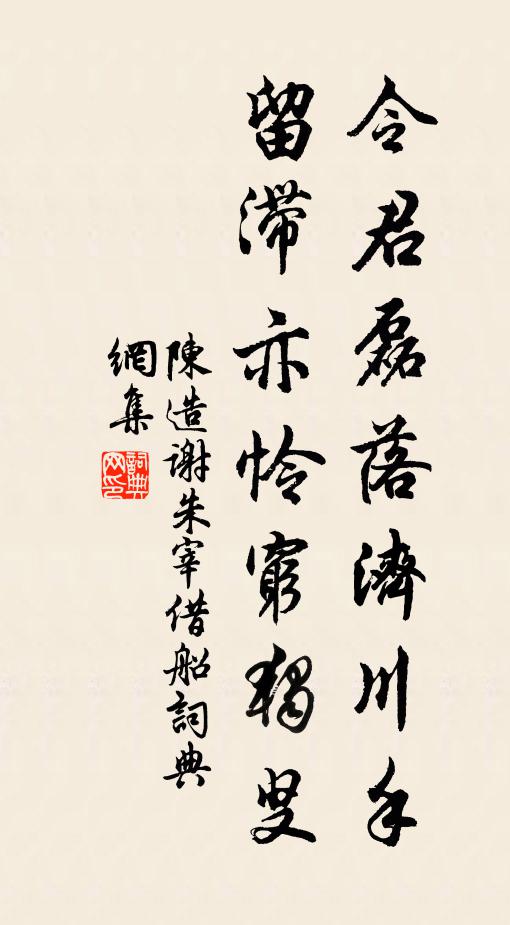 令君磊落濟川手
留滯亦憐窮獨叟
陳造謝朱宰借船詞典
網集
詞典
网印